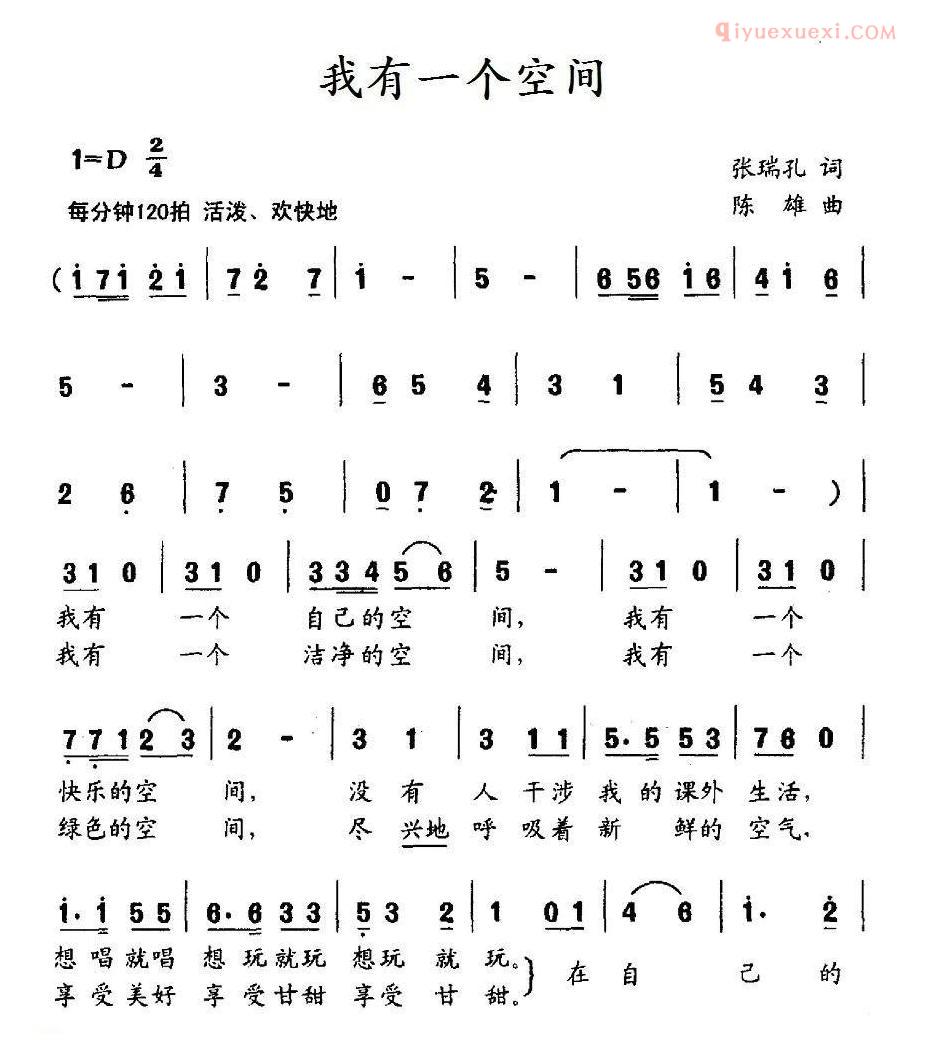 qiyuexuexi.COM
我有一个空间
1=D 2/4
张瑞孔 词
每分钟120拍 活泼、欢快地
陈 雄 曲
( i 7 i 2̇ i | 7 2̇ 7 | i - | 5 - | 6 5 6 i 6 | 4 i 6 |
5 - | 3 - | 6 5 4 | 3 1 | 5 4 3 |
2 6̣ | 7̣ 5̣ | 0 7̣ 2 | 1 - | 1 - ) |
3 1 0 | 3 1 0 | 3 3 4 5 6 | 5 - | 3 1 0 | 3 1 0 |
我有 一个 自己的空 间, 我有 一个
我有 一个 洁净的空 间, 我有 一个
7̣ 7̣ 1 2 3 | 2 - | 3 1 | 3 1 1 | 5· 5 5 3 | 7 6 0 |
快乐的空 间, 没 有 人 干涉 我 的 课外 生活,
绿色的空 间, 尽 兴地 呼 吸着 新 鲜的 空气.
i· i 5 5 | 6· 6 3 3 | 5̣ 3 2 | 1 0 1 | 4 6 | i· 2̇
想 唱就唱 想 玩就玩 想玩 就 玩。} 在 自 己 的
享 受美好 享 受甘甜 享受 甘 甜。